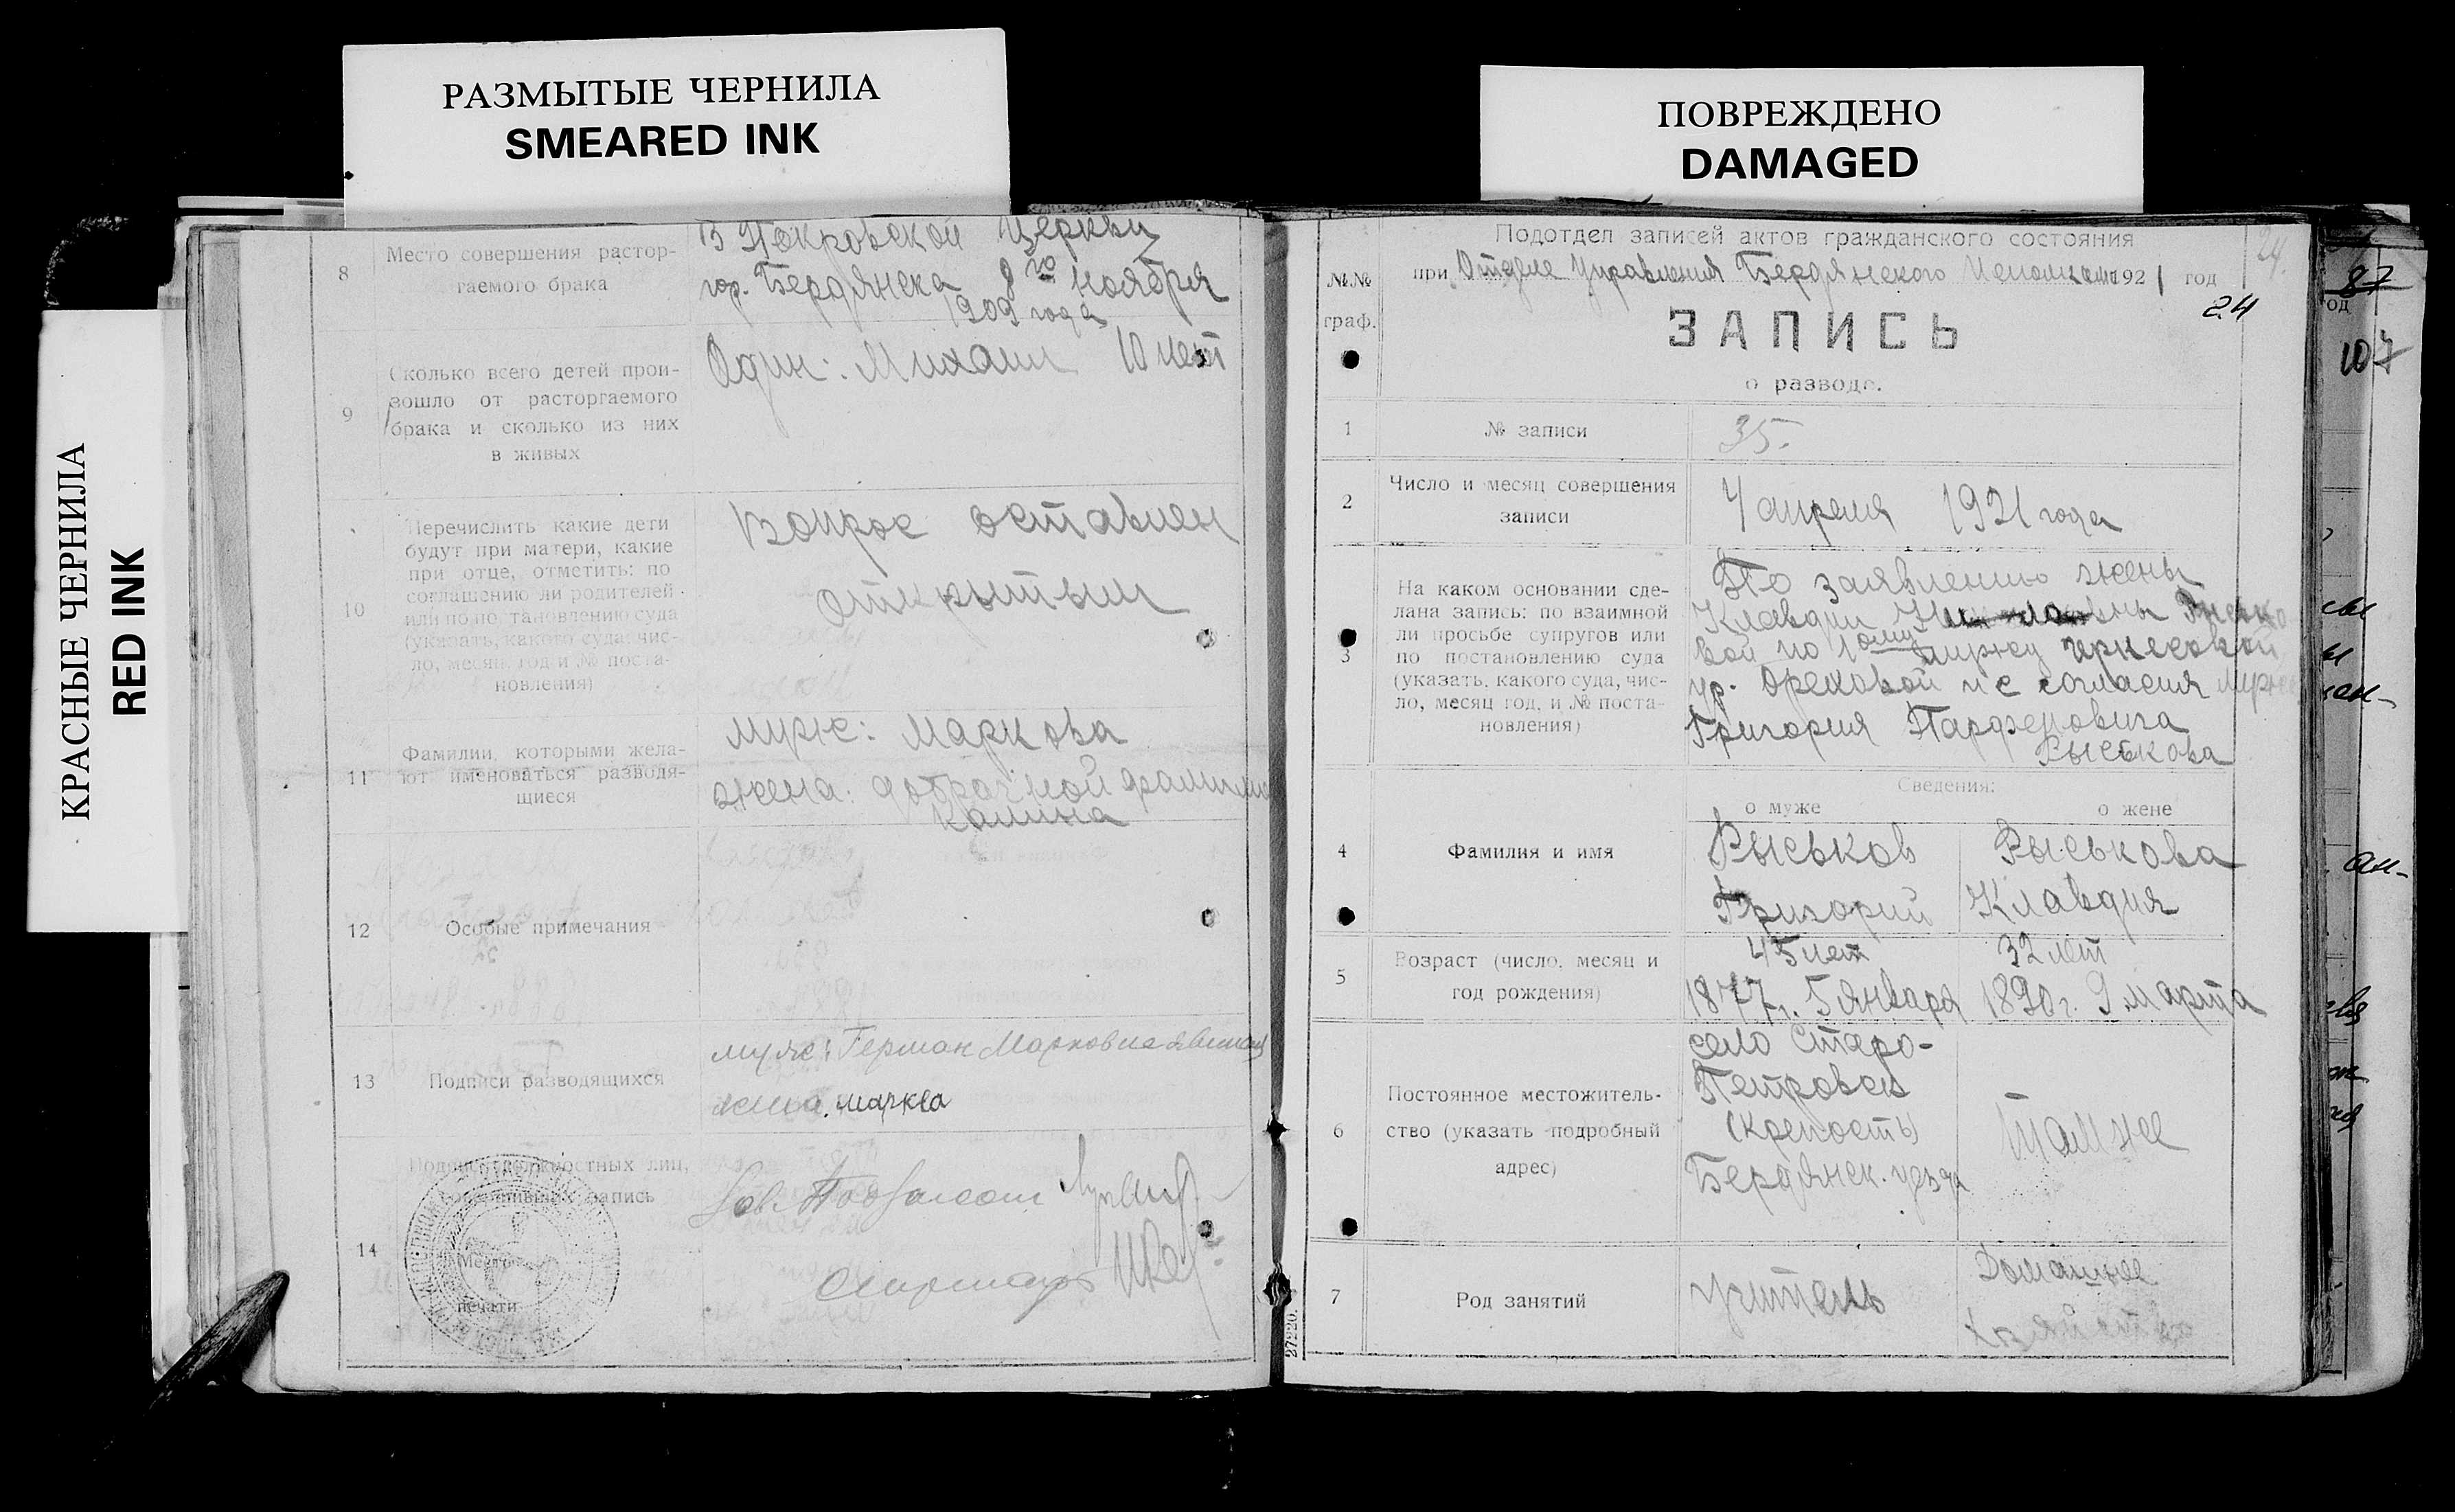 РАЗМЫТЫЕ ЧЕРНИЛА
SMEARED INK
ПОВРЕЖДЕНО
DAMAGED
КРАСНЫЕ ЧЕРНИЛА
RED INK
8
Место совершения растор-
гаемого брака
В Покровской Церкви
гор. Бердянска 8го ноября
1909 года
9
Сколько всего детей прои-
зошло от расторгаемого
брака и сколько из них
в живых
Один: Михаил 10 лет
10
Перечислить какие дети
будут при матери, какие
при отце, отметить: по
соглашению ли родителей
или по по тановлению суда
(указать, какого суда, чис-
ло, месяц, год и № поста-
новления)
Вопрос оставлен
открытым
11
Фамилии, которыми жела-
ют именоваться разводя-
щиеся
муж: Маркова
жена: добрачной фамилии
Калина
12
Особые примечания
13
Подписи разводящихся
муж: Герман Маркович
жена.
14
Подписи должностных лиц,
запись
Место
печати
Зав. Подотделом
Секретарь
Подотдел записей актов гражданского состояния
№№
граф.
при Отделе Управления Бердянского Исполкома 1921 год
24.
24
ЗАПИСЬ
о разводе.
1
№ записи
35.
2
Число и месяц совершения
записи
4 апреля 1921 года
3
На каком основании сде-
лана запись: по взаимной
ли просьбе супругов или
по постановлению суда
(указать, какого суда, чис-
ло, месяц, год, и № поста-
новления)
По заявлению жены
Клавдии
вой по 1ому мужу
ур. Ореховой и с согласия мужа
Григория Парфеновича
Рыськова
Сведения:
о муже
о жене
4
Фамилия и имя
Рыськов
Григорий
Рыськова
Клавдия
5
Возраст (число, месяц и
год рождения)
45 лет
1877г. 5 января
32 лет
1890г. 9 марта
6
Постоянное местожитель-
ство (указать подробный
адрес)
село Старо-
Петровск
(крепость)
Бердянск. уезда
Там же
7
Род занятий
Учитель
Домашнее
хозяйство
27220.
87
од
107